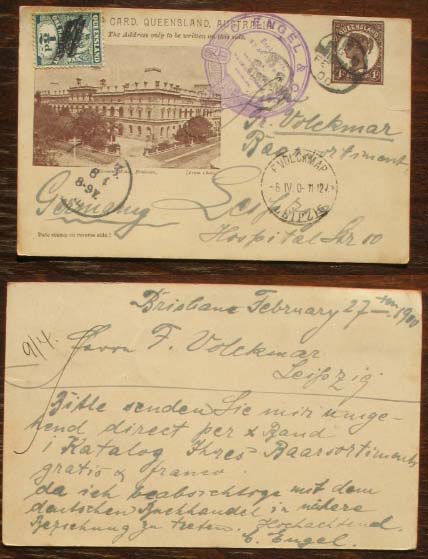 CARD, QUEENSLAND, AUSTRALIA
The Address only to be written on this side.
QUEENSLAND
ENGEL & C
QUEENSLAND
F. Volckmar
Baarsortiment
Leipzig
Hospital Str 10
Germany
F. VOLCKMAR
LEIPZIG
Brisbane February 27 1900
9/4.
Herrn F. Volckmar
Leipzig
Bitte senden Sie mir umge-
hend direct per x Band
1 Katalog Ihres Baarsortiments
gratis & franco
da ich beabsichtige mit dem
deutschen Buchhandel in nähere
Beziehung zu treten. Hochachtend.
C. Engel.